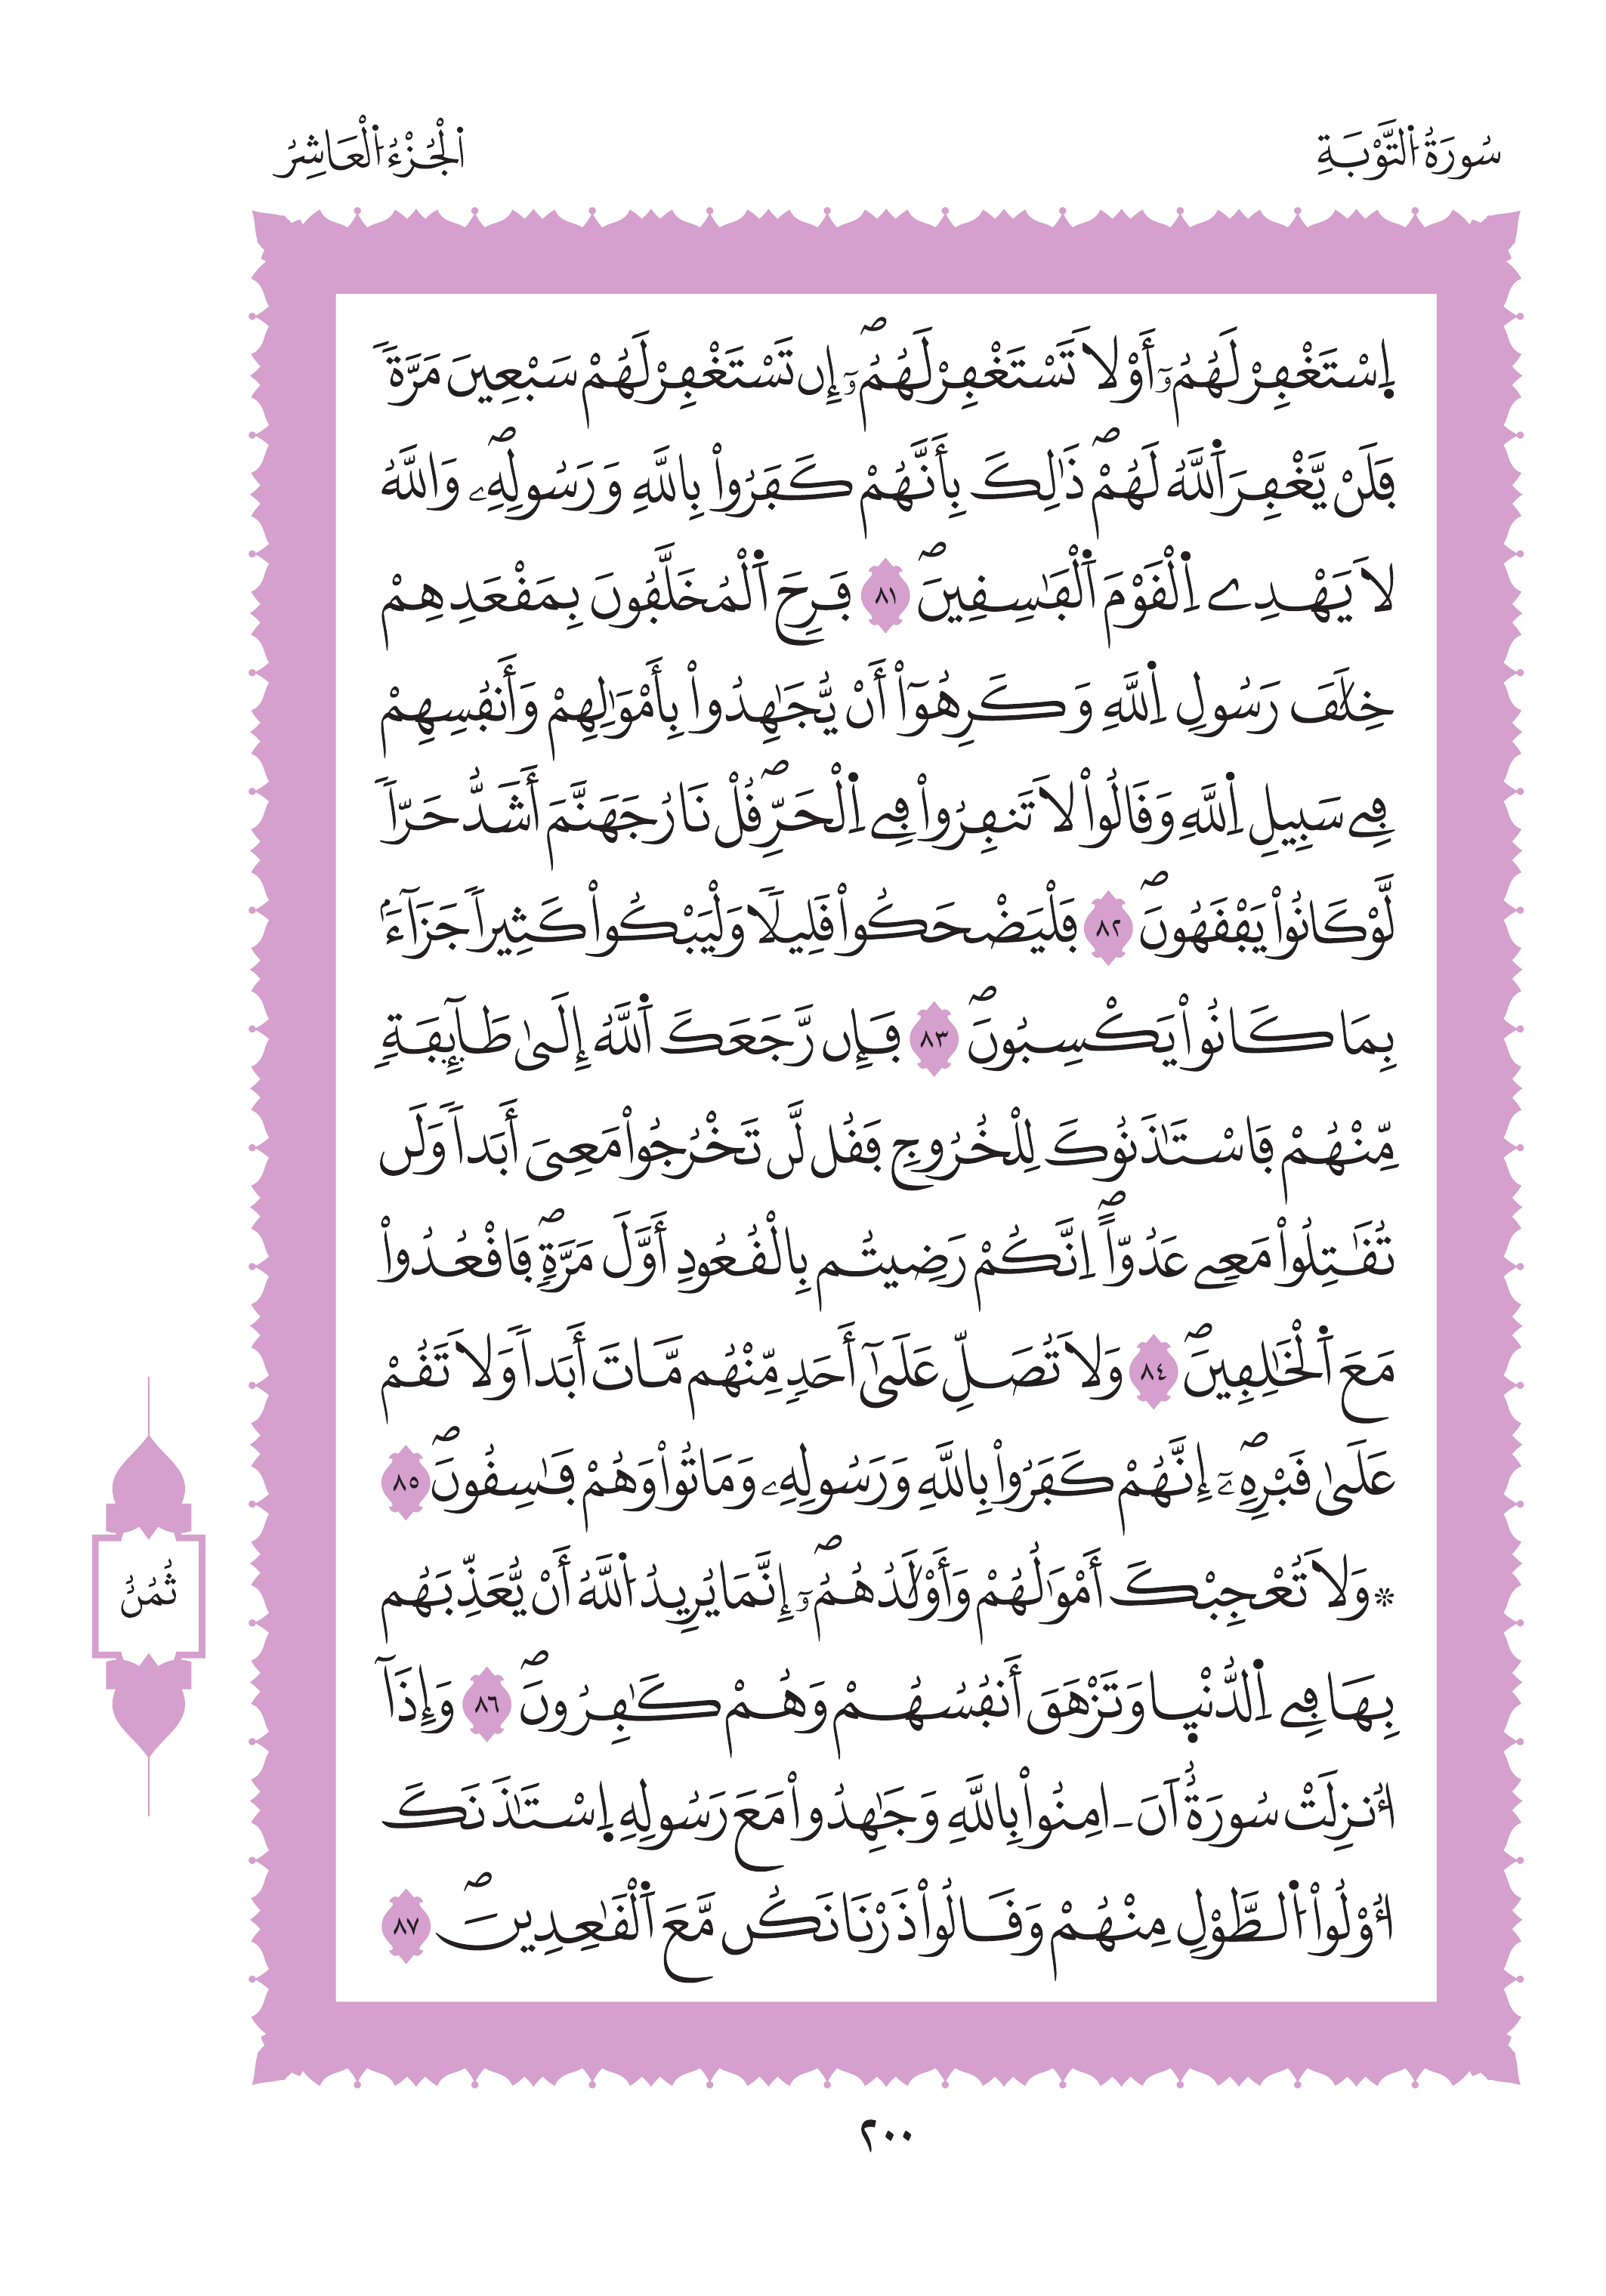 سُورَةُ اُ۬لتَّوْبَةِ
اُ۬لْجُزْءُ اُ۬لْعَاشِرُ
اِ۪سْتَغْفِرْ لَهُمُۥٓ أَوْ لَا تَسْتَغْفِرْ لَهُمُۥٓۖ إِن تَسْتَغْفِرْ لَهُمْ سَبْعِينَ مَرَّةٗ
فَلَنْ يَّغْفِرَ اَ۬للَّهُ لَهُمْۖ ذَٰلِكَ بِأَنَّهُمْ كَفَرُواْ بِاللَّهِ وَرَسُولِهِۦۖ وَاللَّهُ
لَا يَهْدِے اِ۬لْقَوْمَ اَ۬لْفَٰسِقِينَۖ ٨١ فَرِحَ اَ۬لْمُخَلَّفُونَ بِمَقْعَدِهِمْ
خِلَٰفَ رَسُولِ اِ۬للَّهِ وَكَرِهُوٓاْ أَنْ يُّجَٰهِدُواْ بِأَمْوَٰلِهِمْ وَأَنفُسِهِمْ
فِے سَبِيلِ اِ۬للَّهِ وَقَالُواْ لَا تَنفِرُواْ فِے اِ۬لْحَرِّۖ قُلْ نَارُ جَهَنَّمَ أَشَدُّ حَرّاٗ
لَّوْ كَانُواْ يَفْقَهُونَۖ ٨٢ فَلْيَضْحَكُواْ قَلِيلاٗ وَلْيَبْكُواْ كَثِيراٗ جَزَآءَۢ
بِمَا كَانُواْ يَكْسِبُونَۖ ٨٣ فَإِن رَّجَعَكَ اَ۬للَّهُ إِلَىٰ طَآئِفَةٖ
مِّنْهُمْ فَاسْتَـٰٔذَنُوكَ لِلْخُرُوجِ فَقُل لَّن تَخْرُجُواْ مَعِيَ أَبَداٗ وَلَن
تُقَٰتِلُواْ مَعِے عَدُوّاًۖ اِنَّكُمْ رَضِيتُم بِالْقُعُودِ أَوَّلَ مَرَّةٖۖ فَاقْعُدُواْ
مَعَ اَ۬لْخَٰلِفِينَۖ ٨٤ وَلَا تُصَلِّ عَلَىٰٓ أَحَدٖ مِّنْهُم مَّاتَ أَبَداٗ وَلَا تَقُمْ
عَلَىٰ قَبْرِهِۦٓۖ إِنَّهُمْ كَفَرُواْ بِاللَّهِ وَرَسُولِهِۦ وَمَاتُواْ وَهُمْ فَٰسِقُونَۖ ٨٥
۞ وَلَا تُعْجِبْكَ أَمْوَٰلُهُمْ وَأَوْلَٰدُهُمُۥٓۖ إِنَّمَا يُرِيدُ اُ۬للَّهُ أَنْ يُّعَذِّبَهُم
بِهَا فِے اِ۬لدُّنْي۪ا وَتَزْهَقَ أَنفُسُهُمْ وَهُمْ كَٰفِرُونَۖ ٨٦ وَإِذَآ
أُنزِلَتْ سُورَةٌ أَنَ اٰمِنُواْ بِاللَّهِ وَجَٰهِدُواْ مَعَ رَسُولِهِ اِ۪سْتَـٰٔذَنَكَ
أُوْلُواْ اُ۬لطَّوْلِ مِنْهُمْ وَقَالُواْ ذَرْنَا نَكُن مَّعَ اَ۬لْقَٰعِدِينَۖ ٨٧
ثُمُنُ
٢٠٠